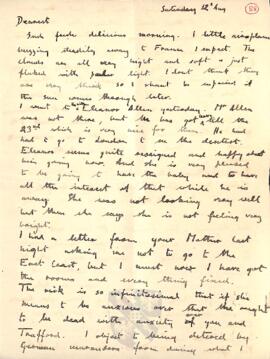 Saturday 12th Aug
Dearest
Such fresh delicious morning. A little aeroplane
buzzing steadily away to France I expect. The
clouds are all very high and soft & just
flecked with light. I dont think they
are very thick so I shant be surprised if
the sun comes through later.
I went to Eleanor Allen yesterday. Mr Allen
was not there, but he has got leave till the
23rd which is very nice for them. He had
had to go to London to see the dentist.
Eleanor seems quite resigned and happy about
him going now. And she is very pleased
to be going to have the baby and to have
all the interest of that while he is
away. She was not looking very well
but then she says she is not feeling very
bright.
I had a letter from your Mother last
night asking me not to go to the
East Coast, but I must now I have got
the rooms and every thing fixed.
The risk is so infinitesimal that if she
means to be anxious over that she ought
to be dead with anxiety over you and
Trafford. I object to being deterred by
German marauders from doing what I